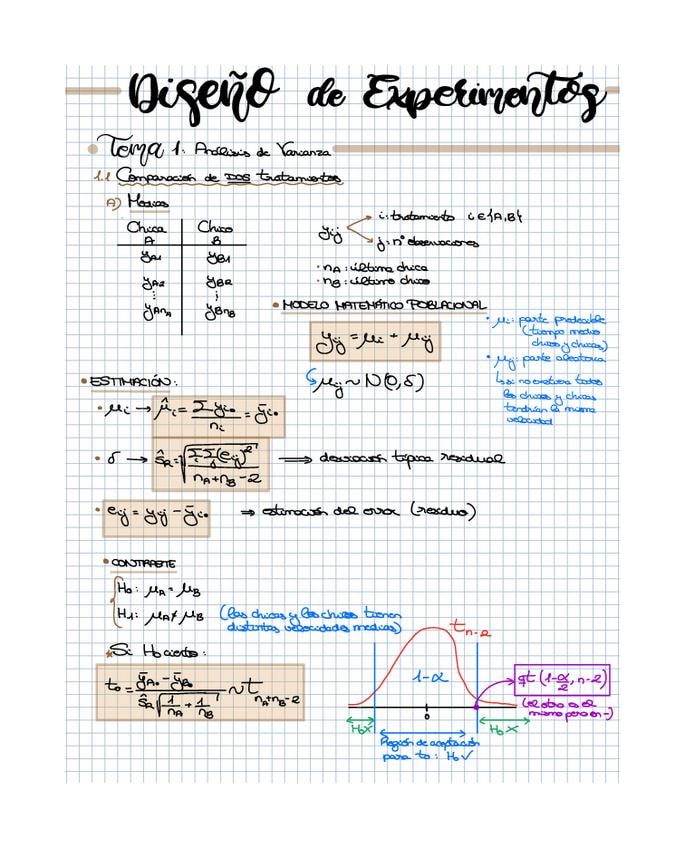 Diseño de Experimentos
Tema 1: Análisis de Varianza
1.1 Comparación de DOS tratamientos
A) Medias
Chica Chico
A B
yA1 yB1
yA2 yB2
⋮ ⋮
yAnA yBnB
yij
i: tratamiento i∈{A,B}
j: nº observaciones
· nA: última chica
· nB: último chico
• MODELO MATEMÁTICO POBLACIONAL
yij = μi + μij
μij ~ N(0,δ)
• μi: parte predecible
(tiempo medio
chicos y chicas)
• μij: parte aleatoria
↳ si no existiera todos
los chicos y chicas
tendrían la misma
velocidad
• ESTIMACIÓN:
• μi → μ̂i = Σyi• / ni = ȳi•
• δ → ŝR = √(ΣΣ(eij)² / (nA+nB-2)) ⟹ desviación típica residual
• eij = yij - ȳi• ⇒ estimación del error (residuo)
• CONTRASTE
H0: μA = μB
H1: μA ≠ μB (las chicas y los chicos tienen
distintas velocidades medias)
Si H0 cierto:
t0 = (ȳA• - ȳB•) / (ŝR √(1/nA + 1/nB)) ~ t nA+nB-2
tn-2
1-α
qt (1-α/2, n-2)
(el otro es el
mismo pero en -)
0
H0 X
H0 X
Región de aceptación
para t0: H0 ✓